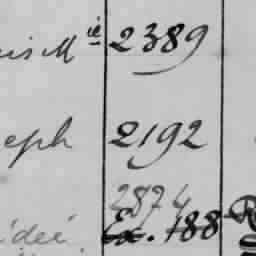 is Mie 2389
eph 2192
2874
idée Ex. 188